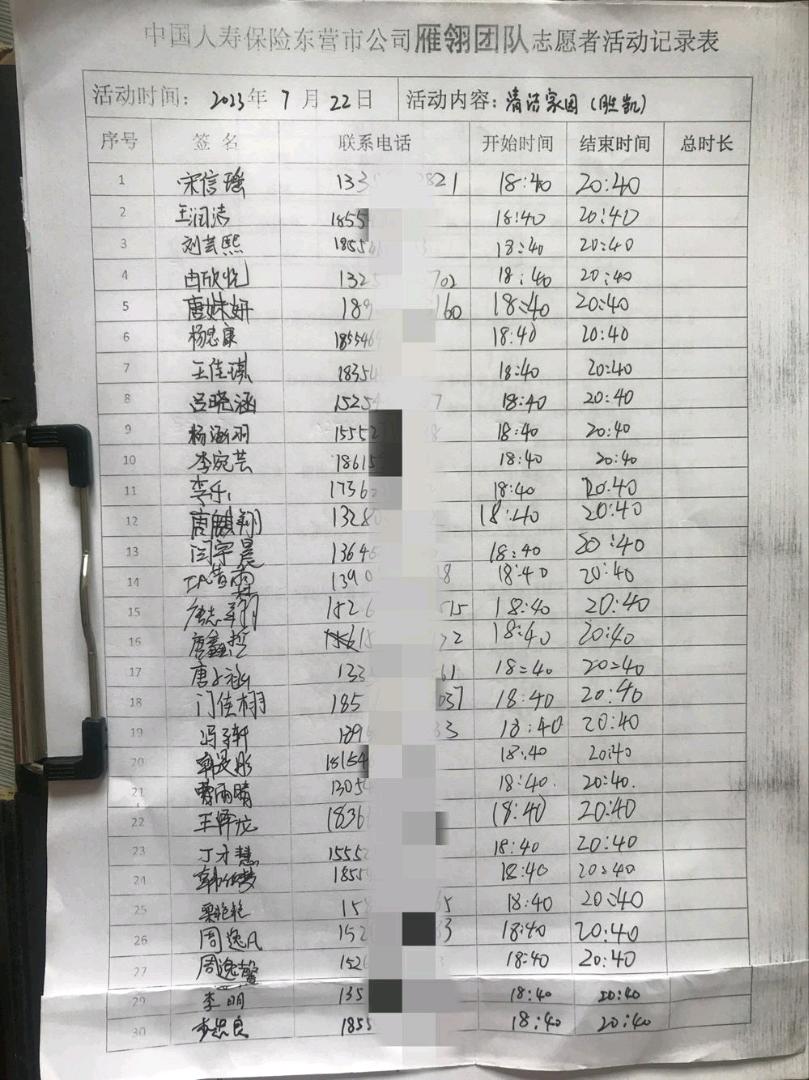 中国人寿保险东营市公司雁翎团队志愿者活动记录表
活动时间： 2023年 7 月 22日 活动内容：清洁家园（胜凯）
序号 签 名 联系电话 开始时间 结束时间 总时长
1 宋信瑶 133 821 18:40 20:40
2 王润洁 1855 18:40 20:40
3 刘芸熙 1855 18:40 20:40
4 由欣悦 132 702 18:40 20:40
5 唐妹妍 189 160 18:40 20:40
6 杨忠康 18554 18:40 20:40
7 王佳琪 1835 18:40 20:40
8 吕晓涵 1525 7 18:40 20:40
9 杨涵羽 1555 18:40 20:40
10 李宛芸 1861 18:40 20:40
11 李乐 1736 18:40 20:40
12 唐麒翔 1328 18:40 20:40
13 闫宇晨 1364 18:40 20:40
14 139 8 18:40 20:40
15 唐志翔 1826 515 18:40 20:40
16 唐鑫哲 22 18:40 20:40
17 唐子涵 133 61 18:40 20:40
18 门佳栩 185 037 18:40 20:40
19 冯子轩 189 33 18:40 20:40
20 18154 18:40 20:40
21 曹雨晴 1305 18:40. 20:40.
22 王怿龙 1836 18:40 20:40
23 丁才慧 1555 18:40 20:40
24 1855 18:40 20:40
25 梁艳艳 15 5 18:40 20:40
26 周逸凡 152 3 18:40 20:40
27 周逸馨 152 18:40 20:40
29 李明 135 18:40 20:40
30 李忠良 1855 18:40 20:40